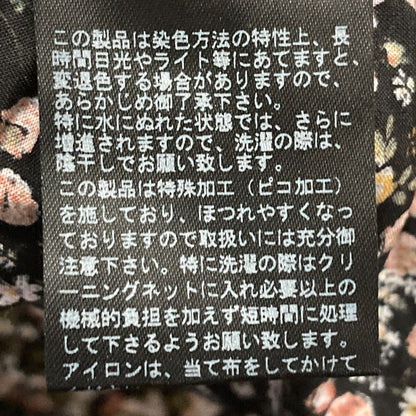 この製品は染色方法の特性上、長
時間日光やライト等にあてますと、
変退色する場合がありますので、
あらかじめ御了承下さい。
特に水にぬれた状態では、さらに
増進されますので、洗濯の際は、
陰干しでお願い致します。
この製品は特殊加工（ピコ加工）
を施しており、ほつれやすくなっ
ておりますので取扱いには充分御
注意下さい。特に洗濯の際はクリ
ーニングネットに入れ必要以上の
機械的負担を加えず短時間に処理
して下さるようお願い致します。
アイロンは、当て布をしてかけて